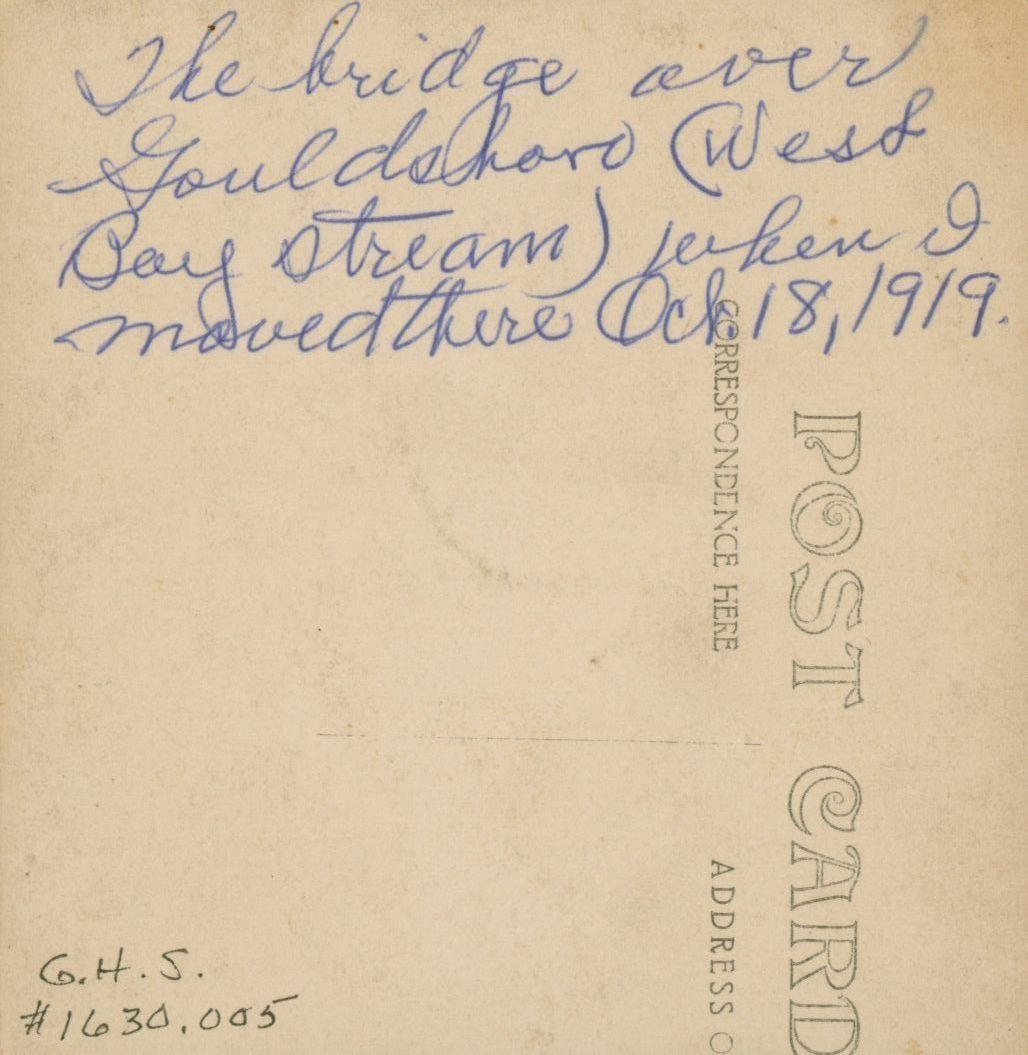 The bridge over
Gouldsboro (West
Bay stream) when I
moved there Oct 18, 1919.
CORRESPONDENCE HERE
POST CARD
ADDRESS O
G.H.S.
#1630.005